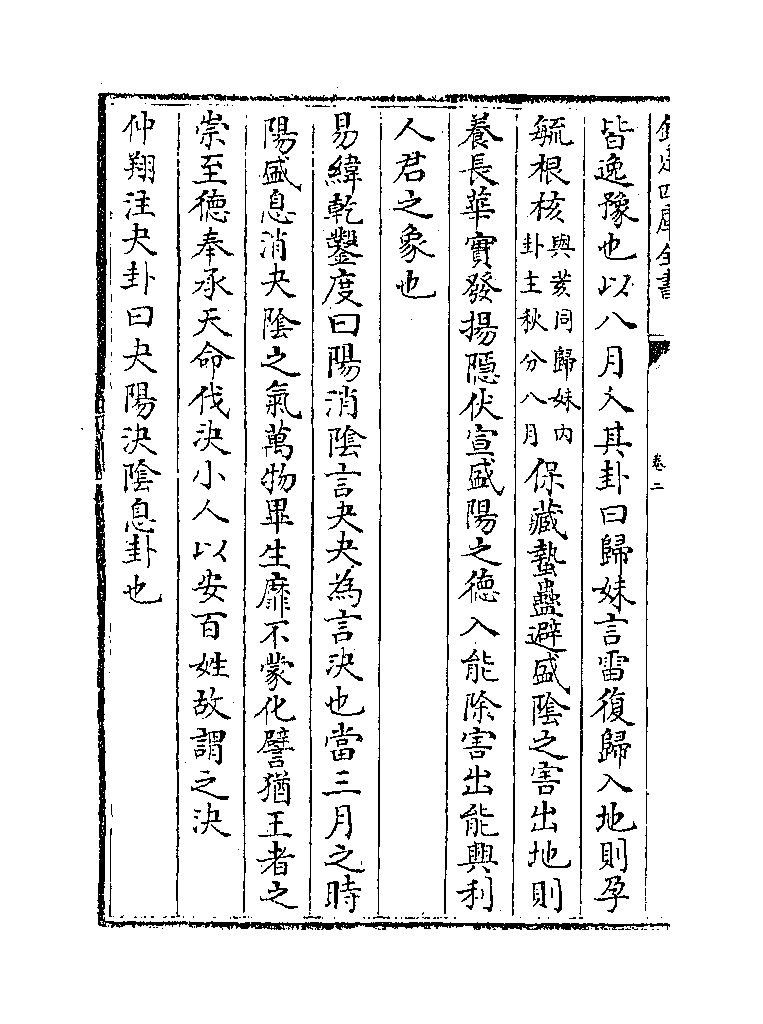 欽定四庫全書
卷二
皆逸豫也以八月入其卦曰歸妹言雷復歸入地則孕
毓根核與荄同歸妹内卦主秋分八月保藏蟄蟲避盛陰之害出地則
養長華實發揚隱伏宣盛陽之德入能除害出能興利
人君之象也
易緯乾鑿度曰陽消陰言夬夬為言決也當三月之時
陽盛息消夬陰之氣萬物畢生靡不蒙化譬猶王者之
崇至德奉承天命伐決小人以安百姓故謂之決
仲翔注夬卦曰夬陽決陰息卦也